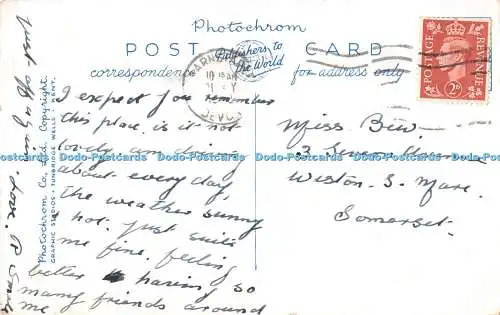 Photochrom
POST CARD
Publishers to
the World
correspondence
for address only
POSTAGE
REVENUE
2D
10 15 AM
DEVON
I expect you remember
this place, is it not
lovely am driving
about every day,
the weather sunny
& hot. Just suits
me fine, feeling
better & having so
many friends around
me.
Just off again.
love.
Miss Bew.
3
Weston. S. Mare.
Somerset.
Photochrom Co., Ltd., Copyright.
GRAPHIC STUDIOS - TUNBRIDGE WELLS, KENT.
Dodo-Postcards Dodo-Postcards Dodo-Postcards Dodo-Postcards Dodo-Postcards Dodo-Postcards